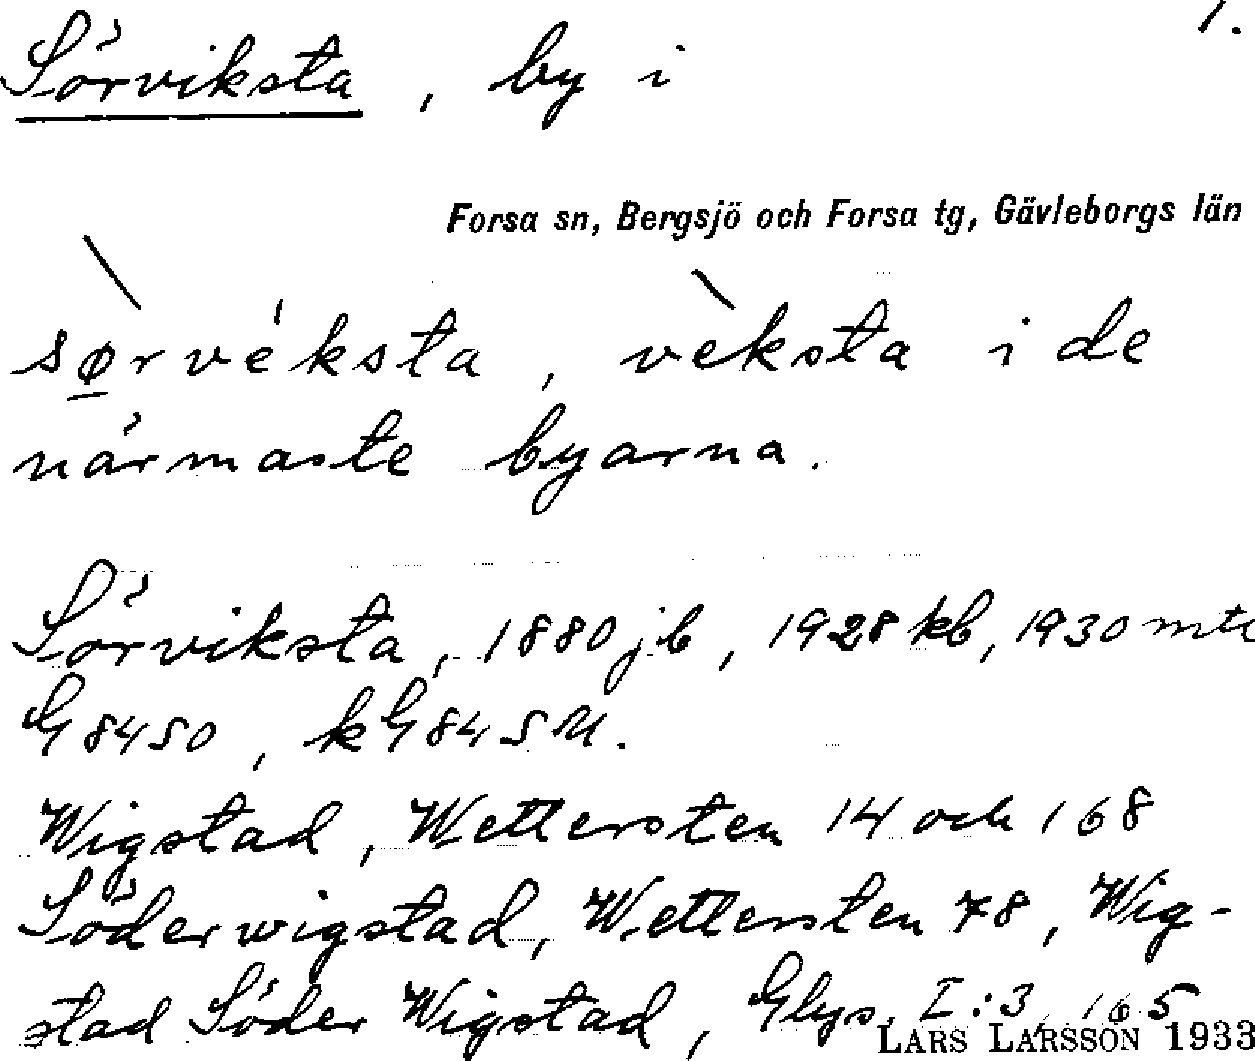 1.
Sörviksta, by i
Forsa sn, Bergsjö och Forsa tg, Gävleborgs län
sørvéksta, vèksta i de
närmaste byarna.
Sörviksta, 1880 jb, 1928 kb, 1930 mtl
G 8450, k G 845 SU.
Wigstad, Wettersten 14 och 168
Söderwigstad, Wettersten 78, Wig-
stad Söder Wigstad, Glys. I:3, 165
LARS LARSSON 1933